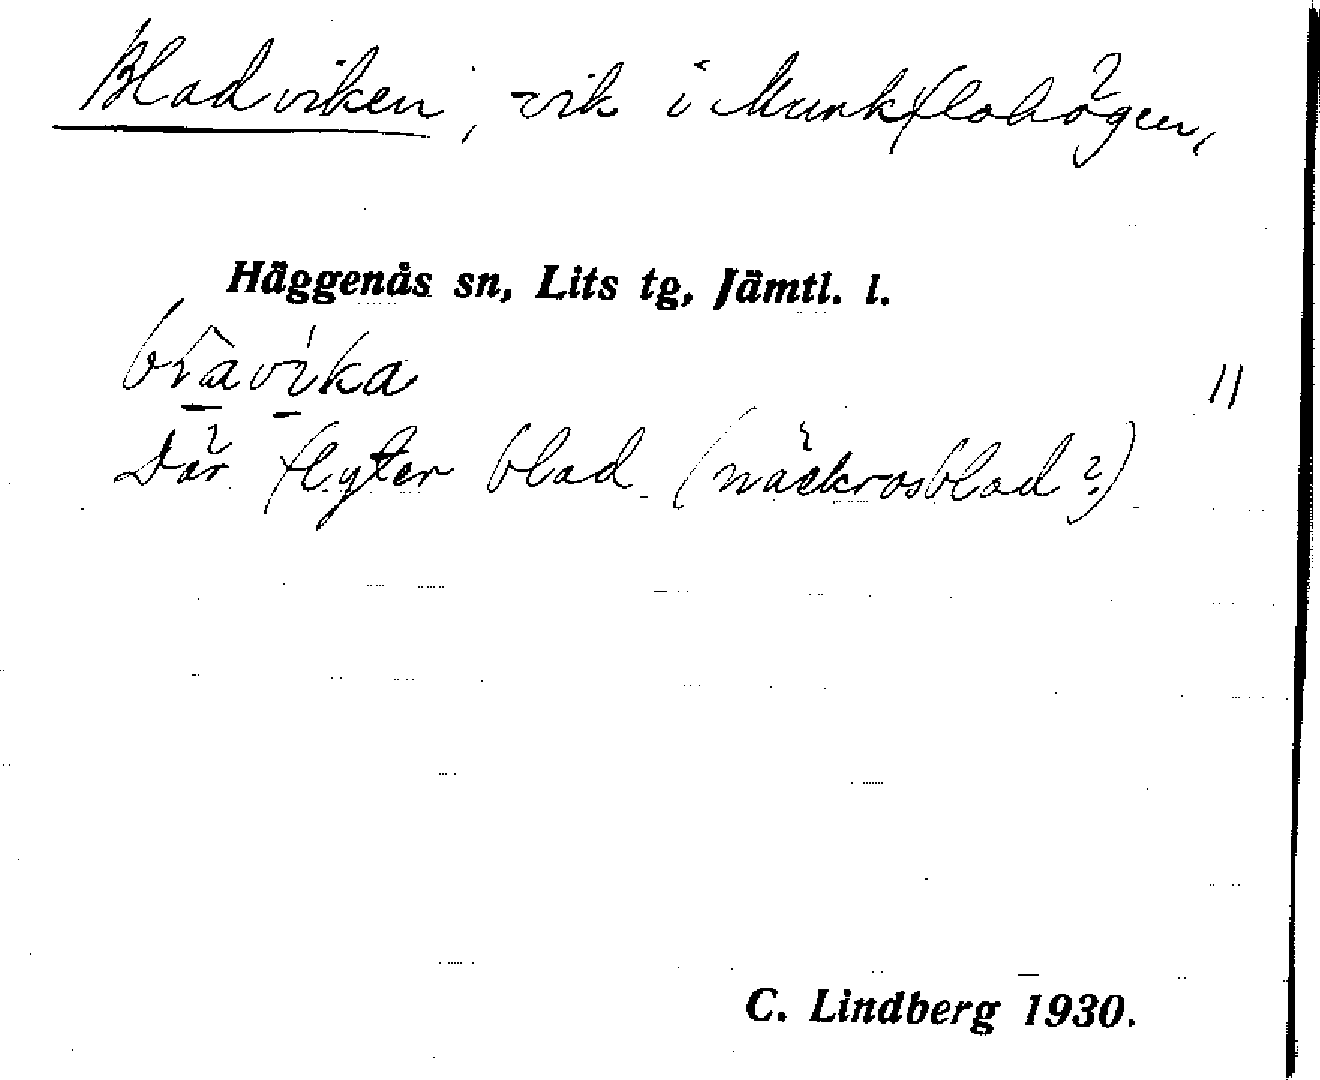 Bladviken, vik i Munkflohögen,
Häggenås sn, Lits tg, Jämtl. l.
blavika
11
Där flyter blad (näckrosblad?)
C. Lindberg 1930.